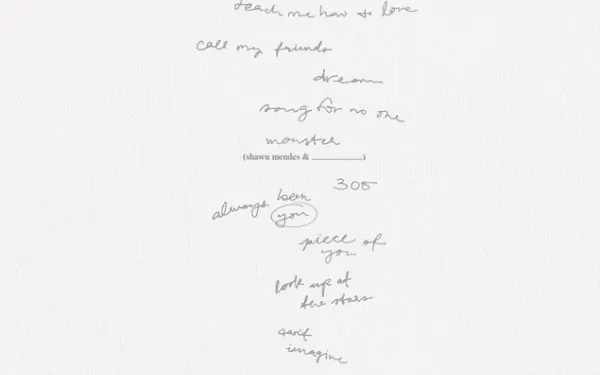 teach me how to love
call my friends
dream
song for no one
monster
(shawn mendes & ____________)
305
always been
you
piece of
you
look up at
the stars
can't
imagine